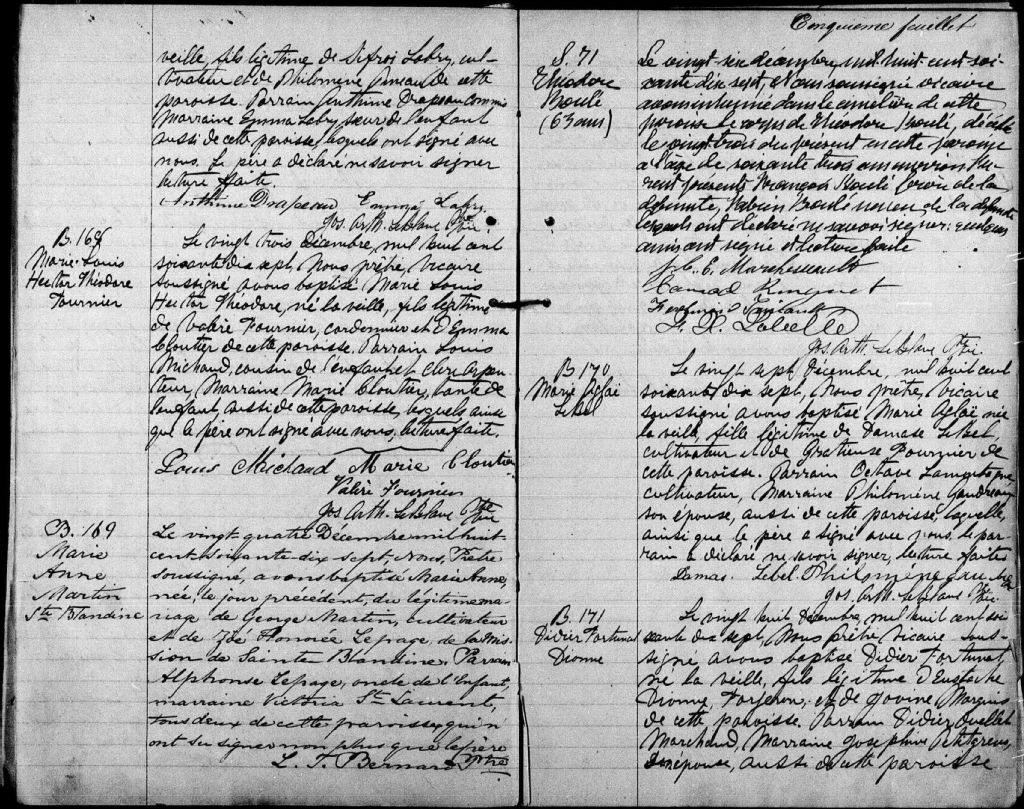 veille, fils légitime de Sifroi Labry, cul-
tivateur et de Philomène Pineau de cette
paroisse. Parrain Anthime Drapeau Commis
Marraine Emma Labry soeur de l'enfant
aussi de cette paroisse, lesquels ont signé avec
nous. Le père a déclaré ne savoir signer
lecture faite.
Anthime Drapeau Emma Labry
Jos. Arth. Leblanc Ptre Vic.
B. 168
Marie-Louis
Hector Théodore
Fournier
Le vingt trois décembre, mil huit cent
soixante dix sept, Nous prêtre, Vicaire
soussigné avons baptisé Marie Louis
Hector Théodore, né la veille, fils légitime
de Valère Fournier, cordonnier et d'Emma
Cloutier de cette paroisse. Parrain Louis
Michaud, cousin de l'enfant et Clerc Arpen-
teur, Marraine Marie Cloutier, tante de
l'enfant, aussi de cette paroisse, lesquels ainsi
que le père ont signé avec nous, lecture faite.
Louis Michaud Marie Cloutier
Valère Fournier
Jos. Arth. Leblanc Ptre Vic
B. 169
Marie
Anne
Martin
Ste Blandine
Le vingt quatre Décembre mil huit
cent soixante dix sept Nous, Prêtre
soussigné, avons baptisé Marie Anne,
née, le jour précédent, du légitime ma-
riage de George Martin, cultivateur
et de Honorée Lepage de la Mis-
sion de Sainte Blandine. Parrain
Alphonse Lepage, oncle de l'Enfant,
marraine Victoria St Laurent,
tous deux de cette paroisse, qui n'
ont su signer non plus que le père
L. J. Bernard Ptre
Cinquieme feuillet
S. 71
Théodore
Boulé
(63 ans)
Le vingt-six décembre, mil huit cent soi-
xante dix sept, Nous soussigné vicaire
avons inhumé dans le cimetière de cette
paroisse le corps de Théodore Boulé, décédé
le vingt trois du présent en cette paroisse
à l'âge de soixante trois ans environ. Fu-
rent présents François Boulé frère de la
défunte, Fabien Boulé neveu de la défunte
lesquels ont déclaré ne savoir signer; quelques
amis ont signé lecture faite
J. C. E. Marchessault
F. X. Labelle
Jos. Arth. Leblanc Ptre Vic.
B 170
Marie Aglaé
Lebel
Le vingt sept, décembre, mil huit cent
soixante dix sept, Nous prêtre, Vicaire
soussigné avons baptisé Marie Aglaé née
la veille, fille légitime de Damase Lebel,
cultivateur et de Gratieuse Fournier de
cette paroisse. Parrain Octave
cultivateur, Marraine Philomène Gaudreau
son épouse, aussi de cette paroisse, laquelle,
ainsi que le père a signé avec nous. Le par-
rain a déclaré ne savoir signer, lecture faite
Damas. Lebel Philomène
Jos. Arth. Leblanc Ptre Vic.
B. 171
Didier Fortunat
Dionne
Le vingt huit Décembre, mil huit cent soi-
xante dix sept, Nous prêtre vicaire sous-
signé avons baptisé Didier Fortunat
né la veille, fils légitime d'Eustache
Dionne Forgeron, et de Marquis
de cette paroisse. Parrain Didier Ouellet
Marchand, Marraine Josephine Petitgrew
son épouse, aussi de cette paroisse